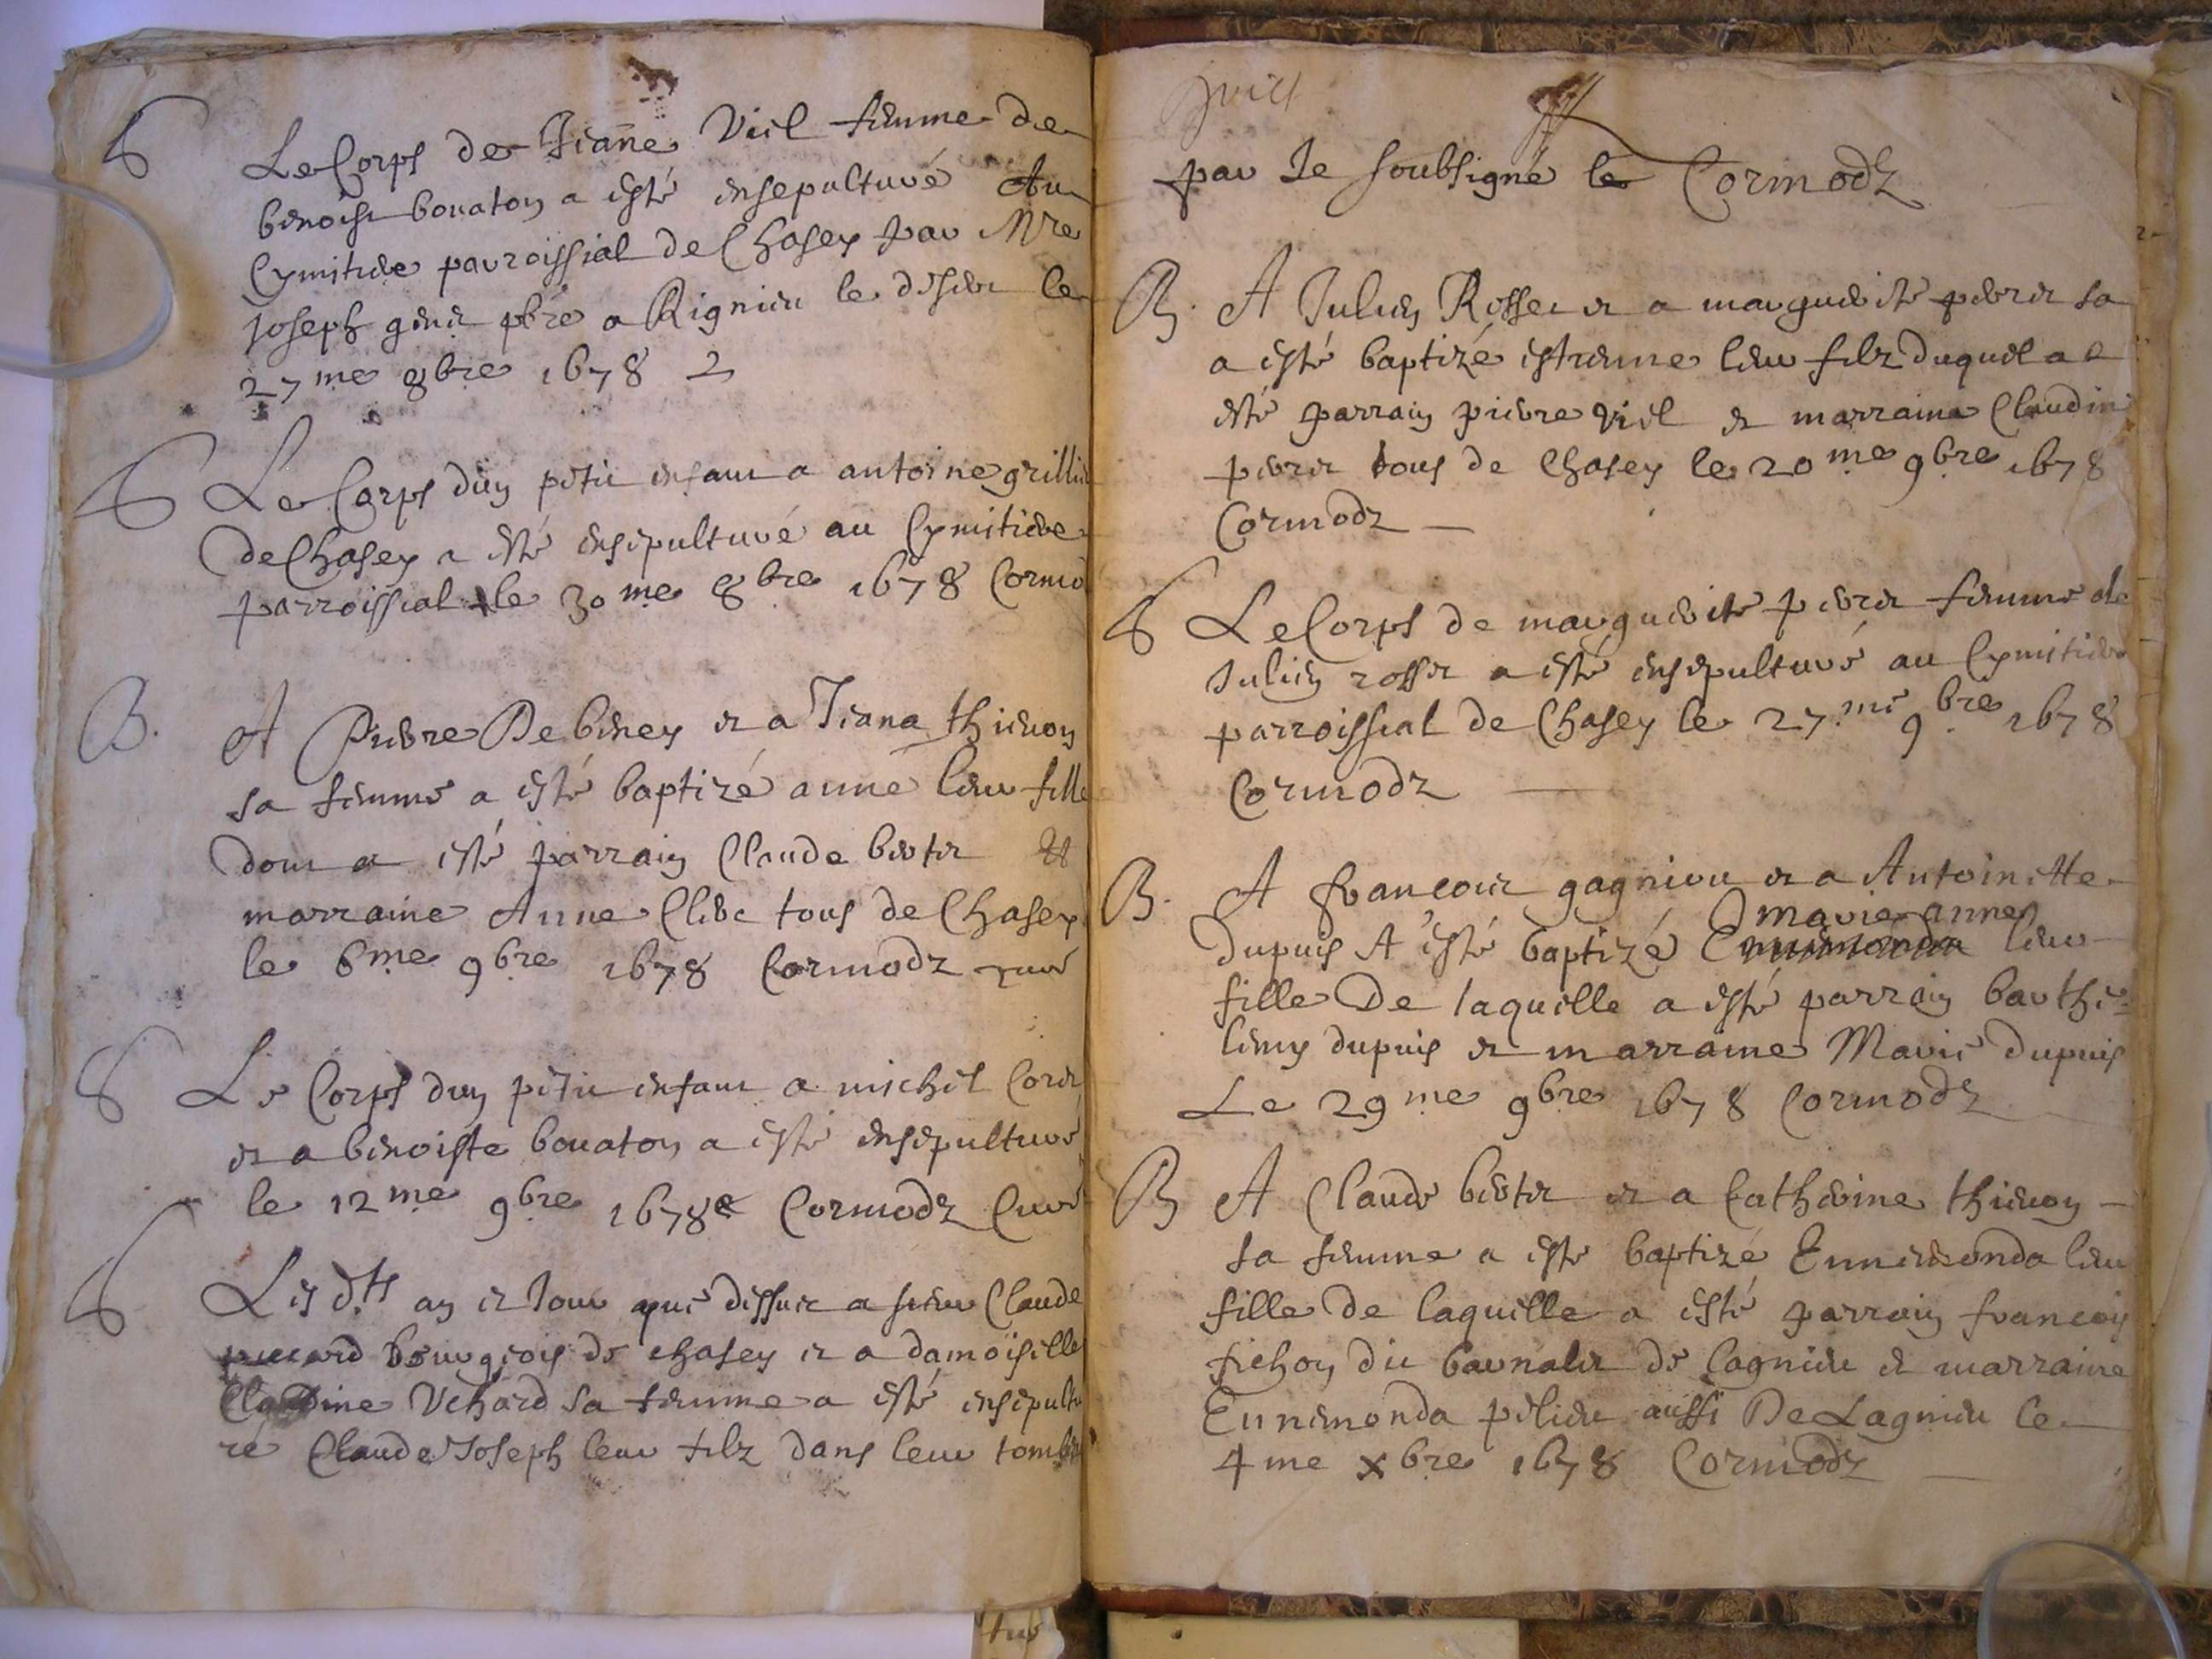 6 Le Corps de Jeanne Viel femme de
benoist bouaton a esté ensepulturé Au
Cymitiere parroissial de Chasey par Mre
Joseph genet pbre a Rignieu le deser le
27me 8bre 1678
6 Le Corps dun petit enfant a antoine grillie
de Chasey a esté ensepulturé au Cymitiere
parroissial le 30me 8bre 1678 Cormo
B. A Pierre Debeney et a Jeana thieuon
sa femme a esté baptizé anne leur fille
dont a esté parrain Claude bertet et
marraine Anne Clerc tous de Chasey
le 6me 9bre 1678 Cormodz curé
6 Le Corps dun petit enfant a michel Coret
et a benoiste bouaton a esté ensepulturé
le 12me 9bre 1678 Cormodz Curé
6 Les dts an et Jour que dessus a sieur Claude
bourgeois de chasey et a damoiselle
Claudine Vehard sa femme a esté ensepultu
ré Claude Joseph leur filz dans leur tombe
par Je soubsigné le Cormodz
B. A Julien Rosset et a marguerite perret sa
a esté baptizé estienne leur filz duquel a
esté parrain pierre viel et marraine Claudine
perret tous de Chasey le 20me 9bre 1678
Cormodz
6 Le Corps de marguerite perret femme de
Julien rosset a esté ensepulturé au Cymitiere
parroissial de Chasey le 27me 9bre 1678
Cormodz
B. A francois gagnieu et a Antoinette
marie anne
dupuis A esté baptizé leur
fille De laquelle a esté parrain barthe-
lemy dupuis et marraine Marie dupuis
Le 29me 9bre 1678 Cormodz
B A Claude bertet et a Catherine thieuon
sa femme a esté baptizé Ennemonda leur
fille de laquelle a esté parrain francois
fichon dit de Lagnieu et marraine
Ennemonda pelieu aussi De Lagnieu le
4me xbre 1678 Cormodz